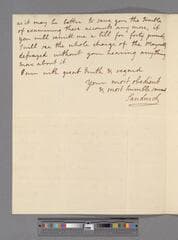 as it may be better to save you the trouble
of examining these accounts any more, if
you will remitt me a bill for forty pounds
I will see the whole charge of the
defrayed without your hearing anything
more about it
I am with great truth & regard
Your most obedient
& most humble servant
Sandwich